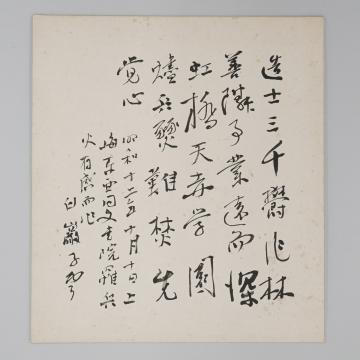 造士三千鬱作林
善隣事業遠而深
虹橋天赤学園
燼兵燹難焚先
覚心
昭和十二年十月十日上
海東亜同文書院羅兵
火有感而作
白巌